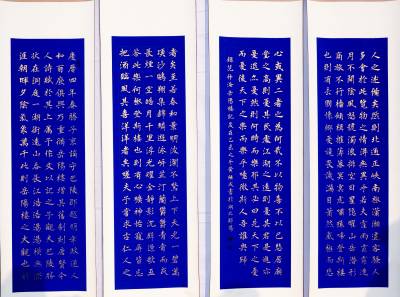 慶曆四年春滕子京謫守巴陵郡越明年政通人
和百廢俱興乃重修岳陽樓增其舊制刻唐賢今
人詩賦於其上屬予作文以記之予觀夫巴陵勝
狀在洞庭一湖銜遠山吞長江浩浩湯湯橫無際
涯朝暉夕陰氣象萬千此則岳陽樓之大觀也前
人之述備矣然則北通巫峽南極瀟湘遷客騷人
多會於此覽物之情得無異乎若夫霪雨霏霏連
月不開陰風怒號濁浪排空日星隱曜山岳潛形
商旅不行檣傾楫摧薄暮冥冥虎嘯猿啼登斯樓
也則有去國懷鄉憂讒畏譏滿目蕭然感極而悲
者矣至若春和景明波瀾不驚上下天光一碧萬
頃沙鷗翔集錦鱗游泳岸芷汀蘭郁郁青青而或
長煙一空皓月千里浮光躍金靜影沉璧漁歌互
答此樂何極登斯樓也則有心曠神怡寵辱皆忘
把酒臨風其喜洋洋者矣嗟夫予嘗求古仁人之
心或異二者之為何哉不以物喜不以己悲居廟
堂之高則憂其民處江湖之遠則憂其君是進亦
憂退亦憂然則何時而樂耶其必曰先天下之憂
而憂後天下之樂而樂乎噫微斯人吾誰與歸
錄范仲淹岳陽樓記